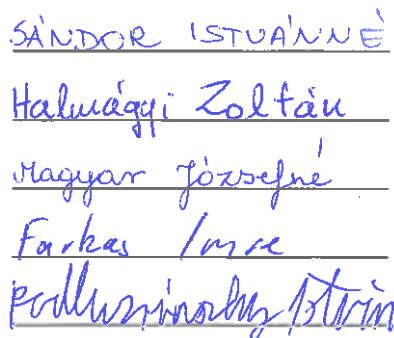 SÁNDOR ISTVÁNNÉ
Halmágyi Zoltán
Magyar Józsefné
Farkas Imre
István